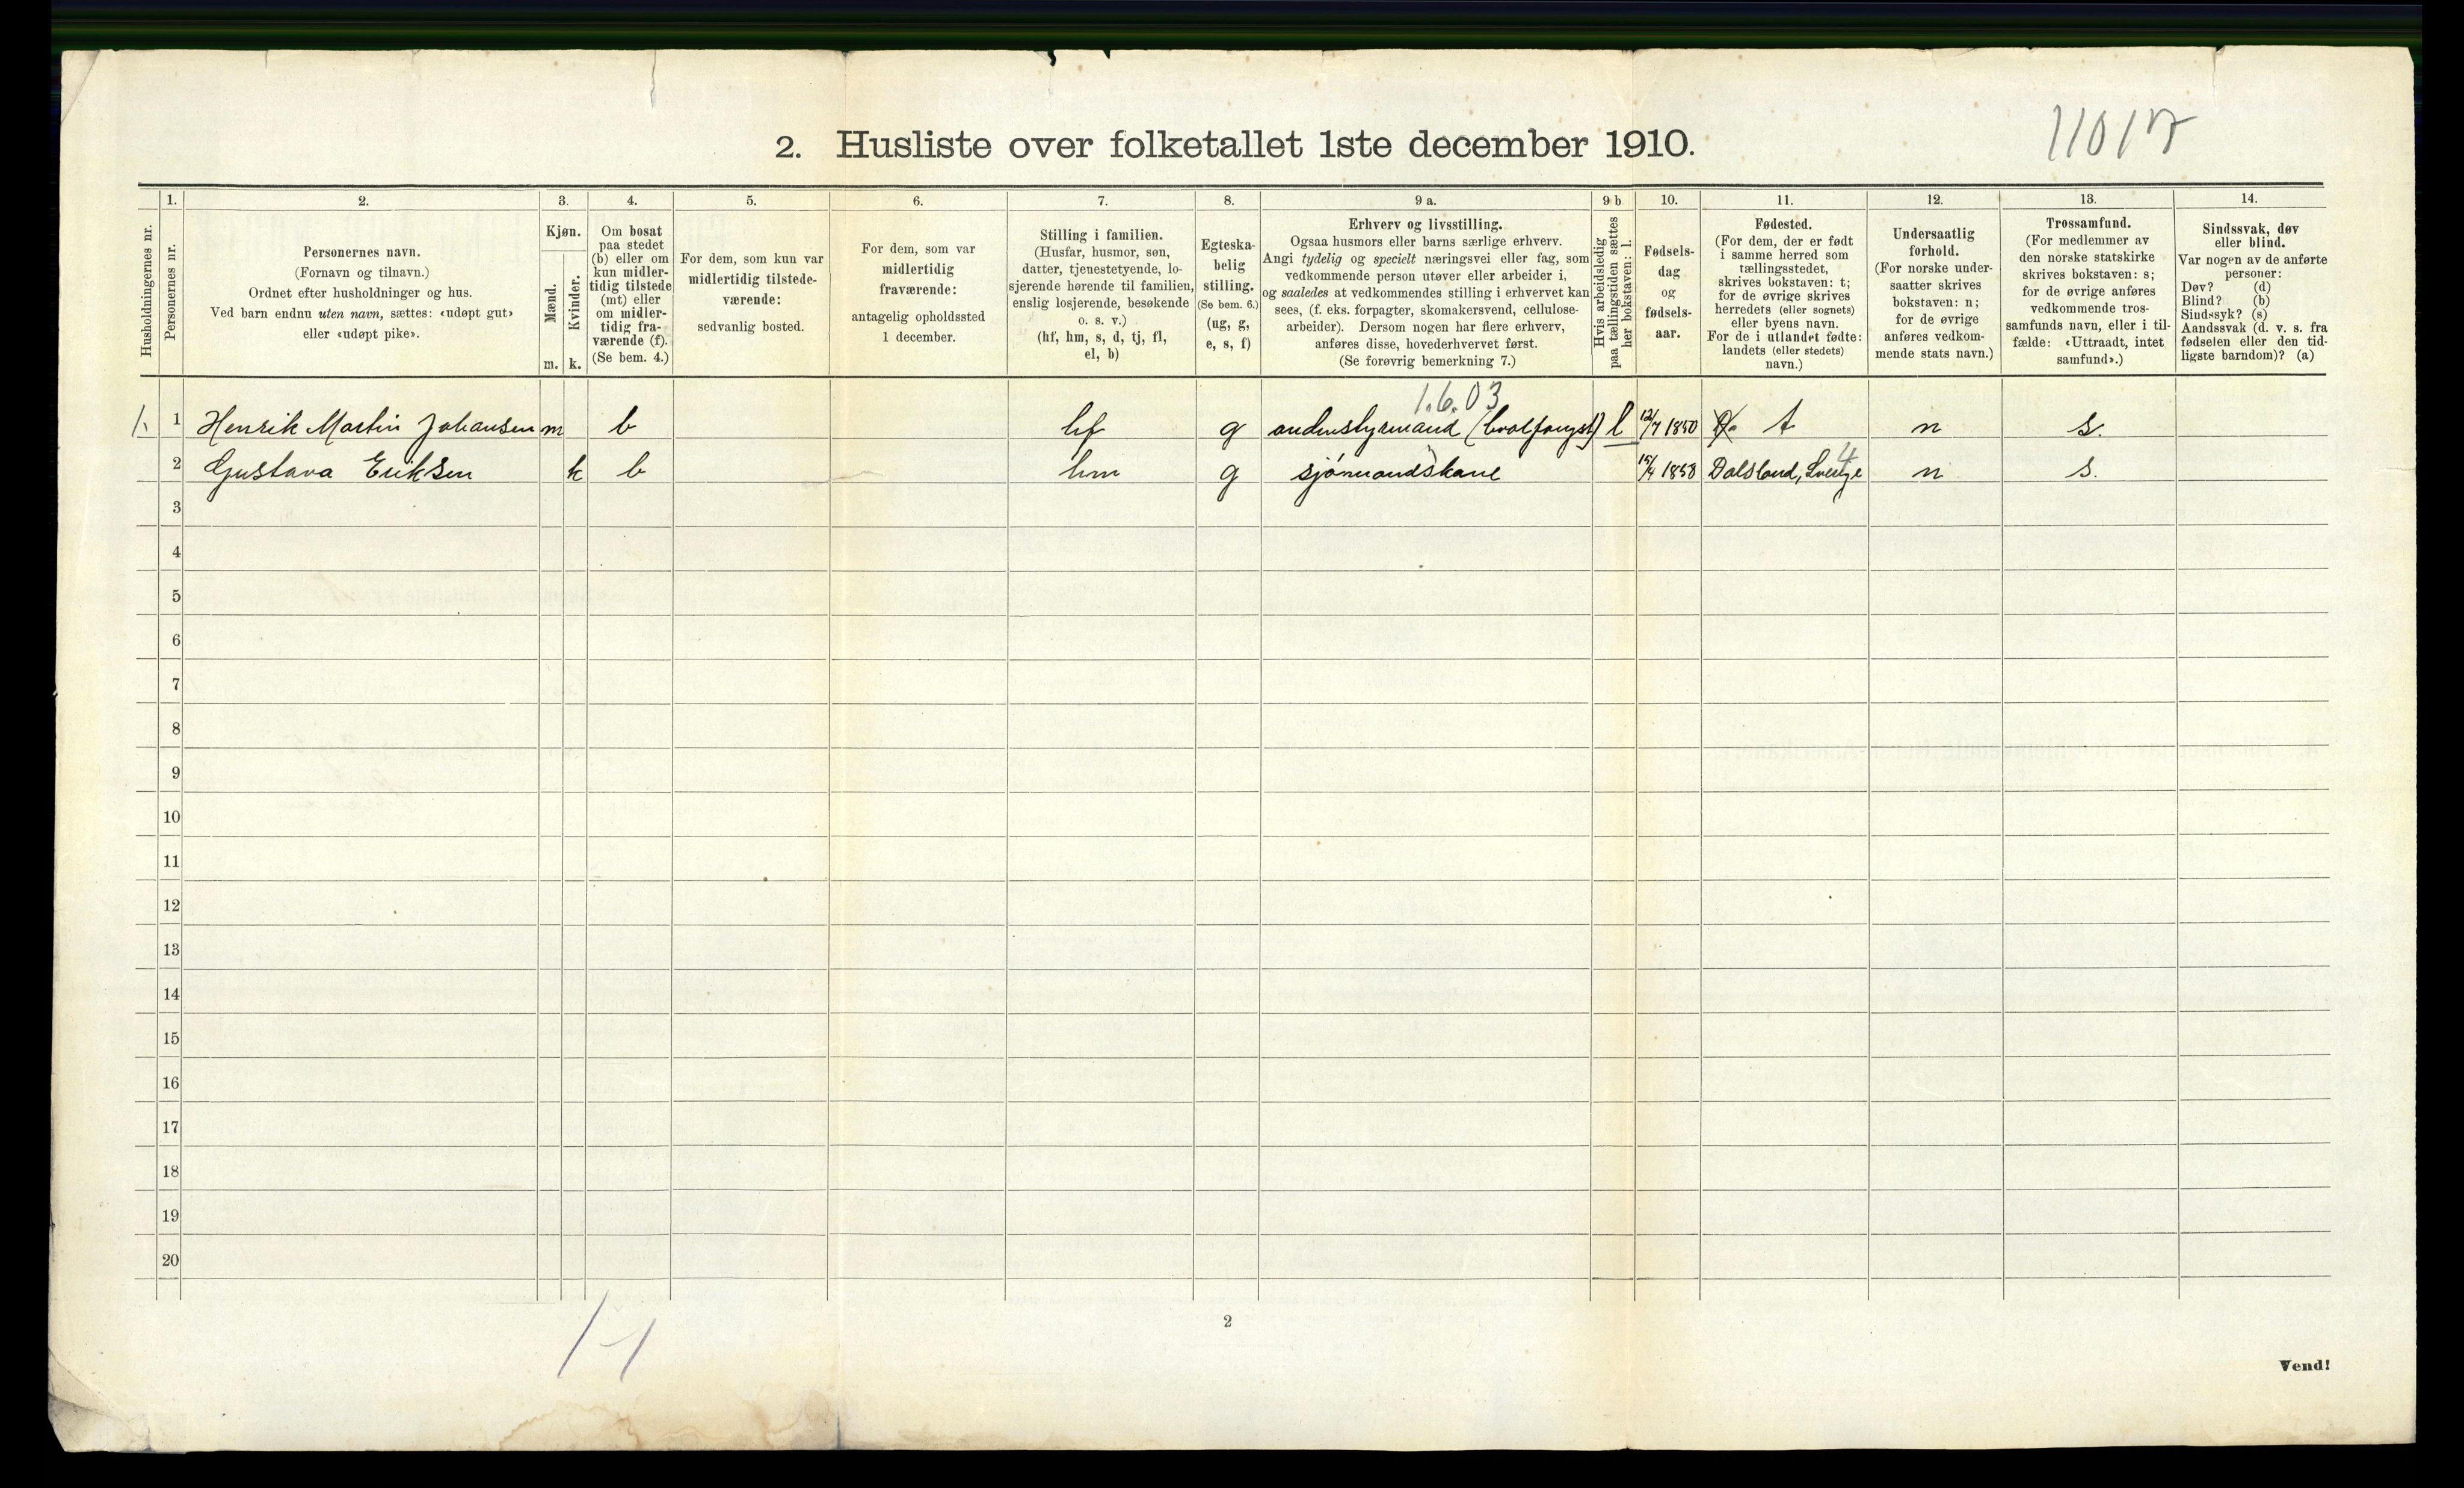 2. Husliste over folketallet 1ste december 1910.
Husholdningernes nr.
1.
Personernes nr.
2.
Personernes navn.
(Fornavn og tilnavn.)
Ordnet efter husholdninger og hus.
Ved barn endnu uten navn, sættes: «udøpt gut»
eller «udøpt pike».
3.
Kjøn.
Mænd.
Kvinder.
m. k.
4.
Om bosat
paa stedet
(b) eller om
kun midler-
tidig tilstede
(mt) eller
om midler-
tidig fra-
værende (f).
(Se bem. 4.)
5.
For dem, som kun var
midlertidig tilstede-
værende:
sedvanlig bosted.
6.
For dem, som var
midlertidig
fraværende:
antagelig opholdssted
1 december.
7.
Stilling i familien.
(Husfar, husmor, søn,
datter, tjenestetyende, lo-
sjerende hørende til familien,
enslig losjerende, besøkende
o. s. v.)
(hf, hm, s, d, tj, fl,
el, b)
8.
Egteska-
belig
stilling.
(Se bem. 6.)
(ug, g,
e, s, f)
9 a.
Erhverv og livsstilling.
Ogsaa husmors eller barns særlige erhverv.
Angi tydelig og specielt næringsvei eller fag, som
vedkommende person utøver eller arbeider i,
og saaledes at vedkommendes stilling i erhvervet kan
sees, (f. eks. forpagter, skomakersvend, cellulose-
arbeider). Dersom nogen har flere erhverv,
anføres disse, hovederhvervet først.
(Se forøvrig bemerkning 7.)
9 b
Hvis arbeidsledig
paa tællingstiden sættes
her bokstaven: l.
10.
Fødsels-
dag
og
fødsels-
aar.
11.
Fødested.
(For dem, der er født
i samme herred som
tællingsstedet,
skrives bokstaven: t;
for de øvrige skrives
herredets (eller sognets)
eller byens navn.
For de i utlandet fødte:
landets (eller stedets)
navn.)
12.
Undersaatlig
forhold.
(For norske under-
saatter skrives
bokstaven: n;
for de øvrige
anføres vedkom-
mende stats navn.)
13.
Trossamfund.
(For medlemmer av
den norske statskirke
skrives bokstaven: s;
for de øvrige anføres
vedkommende tros-
samfunds navn, eller i til-
fælde: «Uttraadt, intet
samfund».)
14.
Sindssvak, døv
eller blind.
Var nogen av de anførte
personer:
Døv? (d)
Blind? (b)
Sindssyk? (s)
Aandssvak (d. v. s. fra
fødselen eller den tid-
ligste barndom)? (a)
1.6.03
1. 1 Henrik Martin Johansen m b hf g andenstyrmand (hvalfangst) l 12/7 1850 t n s.
2 Gustava Eriksen k b hm g sjømandskone 15/4 1853 Dalsland, Sverige 4 n s.
3
4
5
6
7
8
9
10
11
12
13
14
15
16
17
18
19
20
1-1
2
Vend!